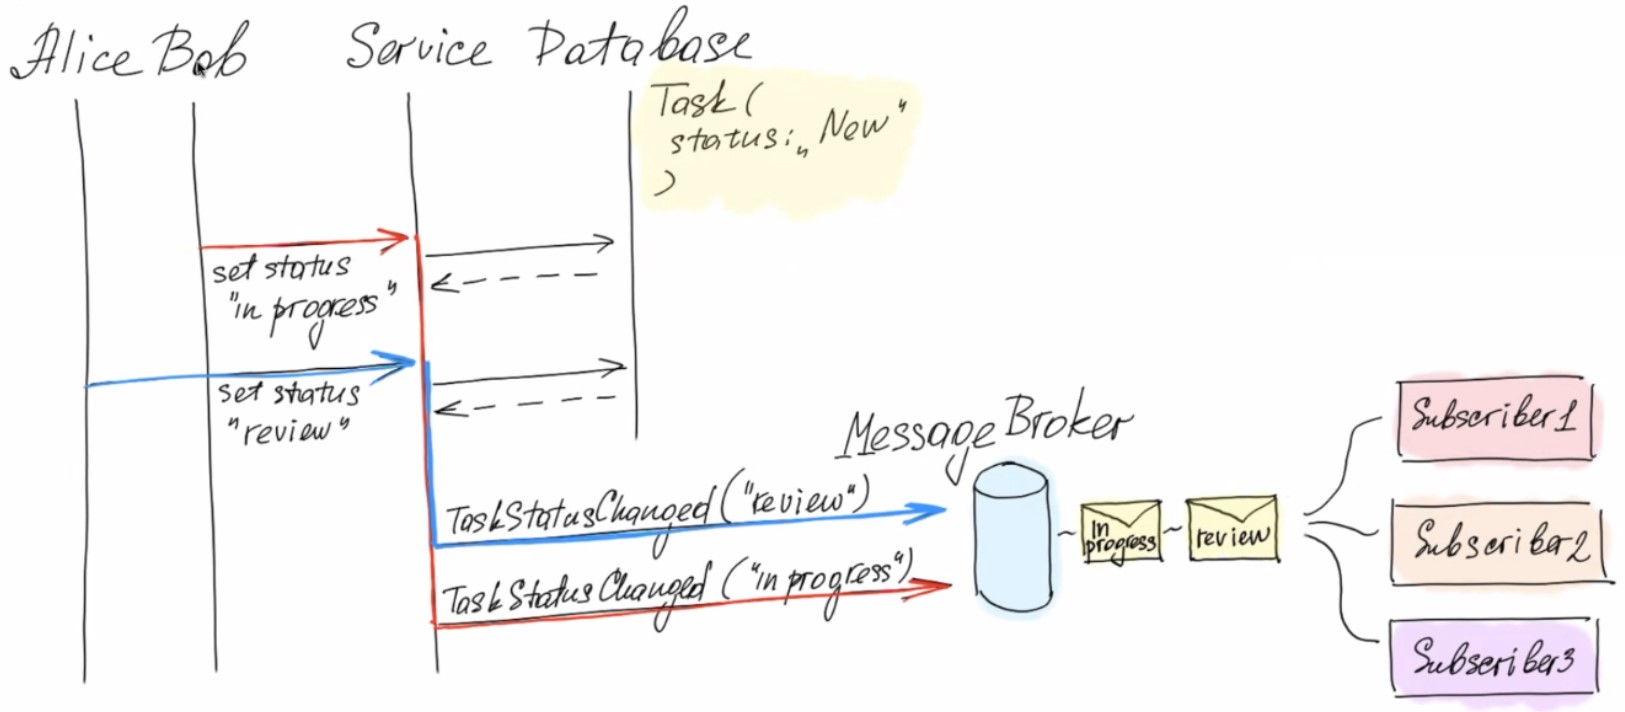 Alice Bob Service Database
Task(
status: „New"
)
set status
"in progress"
set status
"review"
Message Broker
TaskStatusChanged ("review")
TaskStatusChanged ("in progress")
In
progress
review
Subscriber1
Subscriber2
Subscriber3